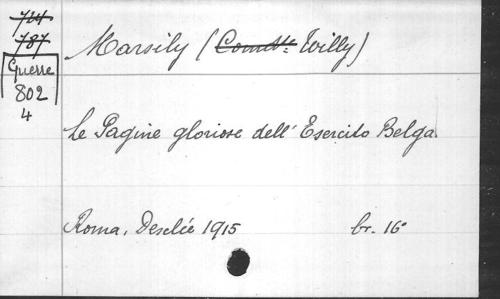 714
787
Guerre
802
4
Marsily (Comdt. Willy)
Le Pagine gloriose dell' Esercito Belga.
Roma, Desclée 1915 br. 16°